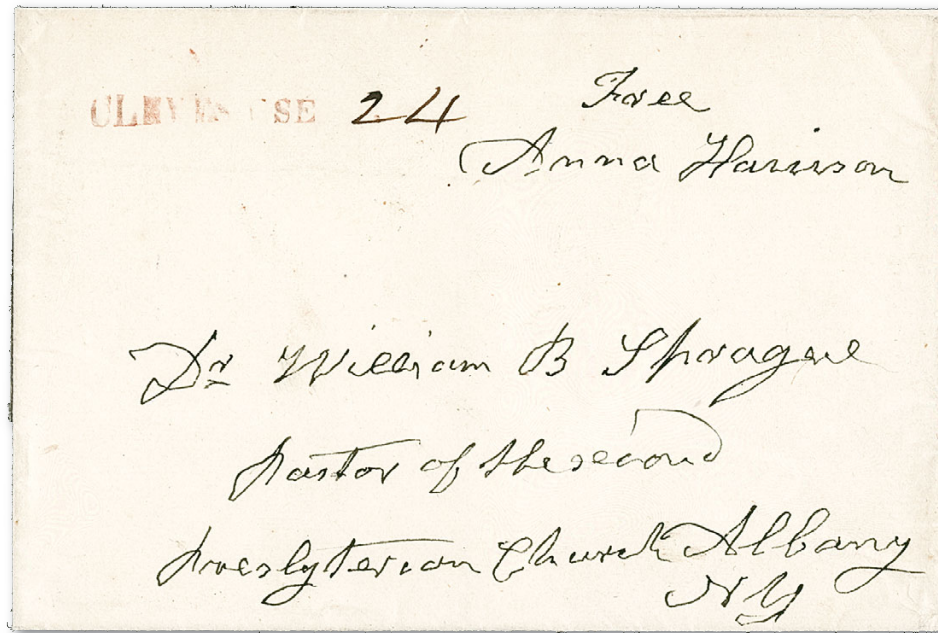 24 Free
Anna Harrison
Dr William B Sprague
pastor of the second
Presbyterian Church Albany
NY